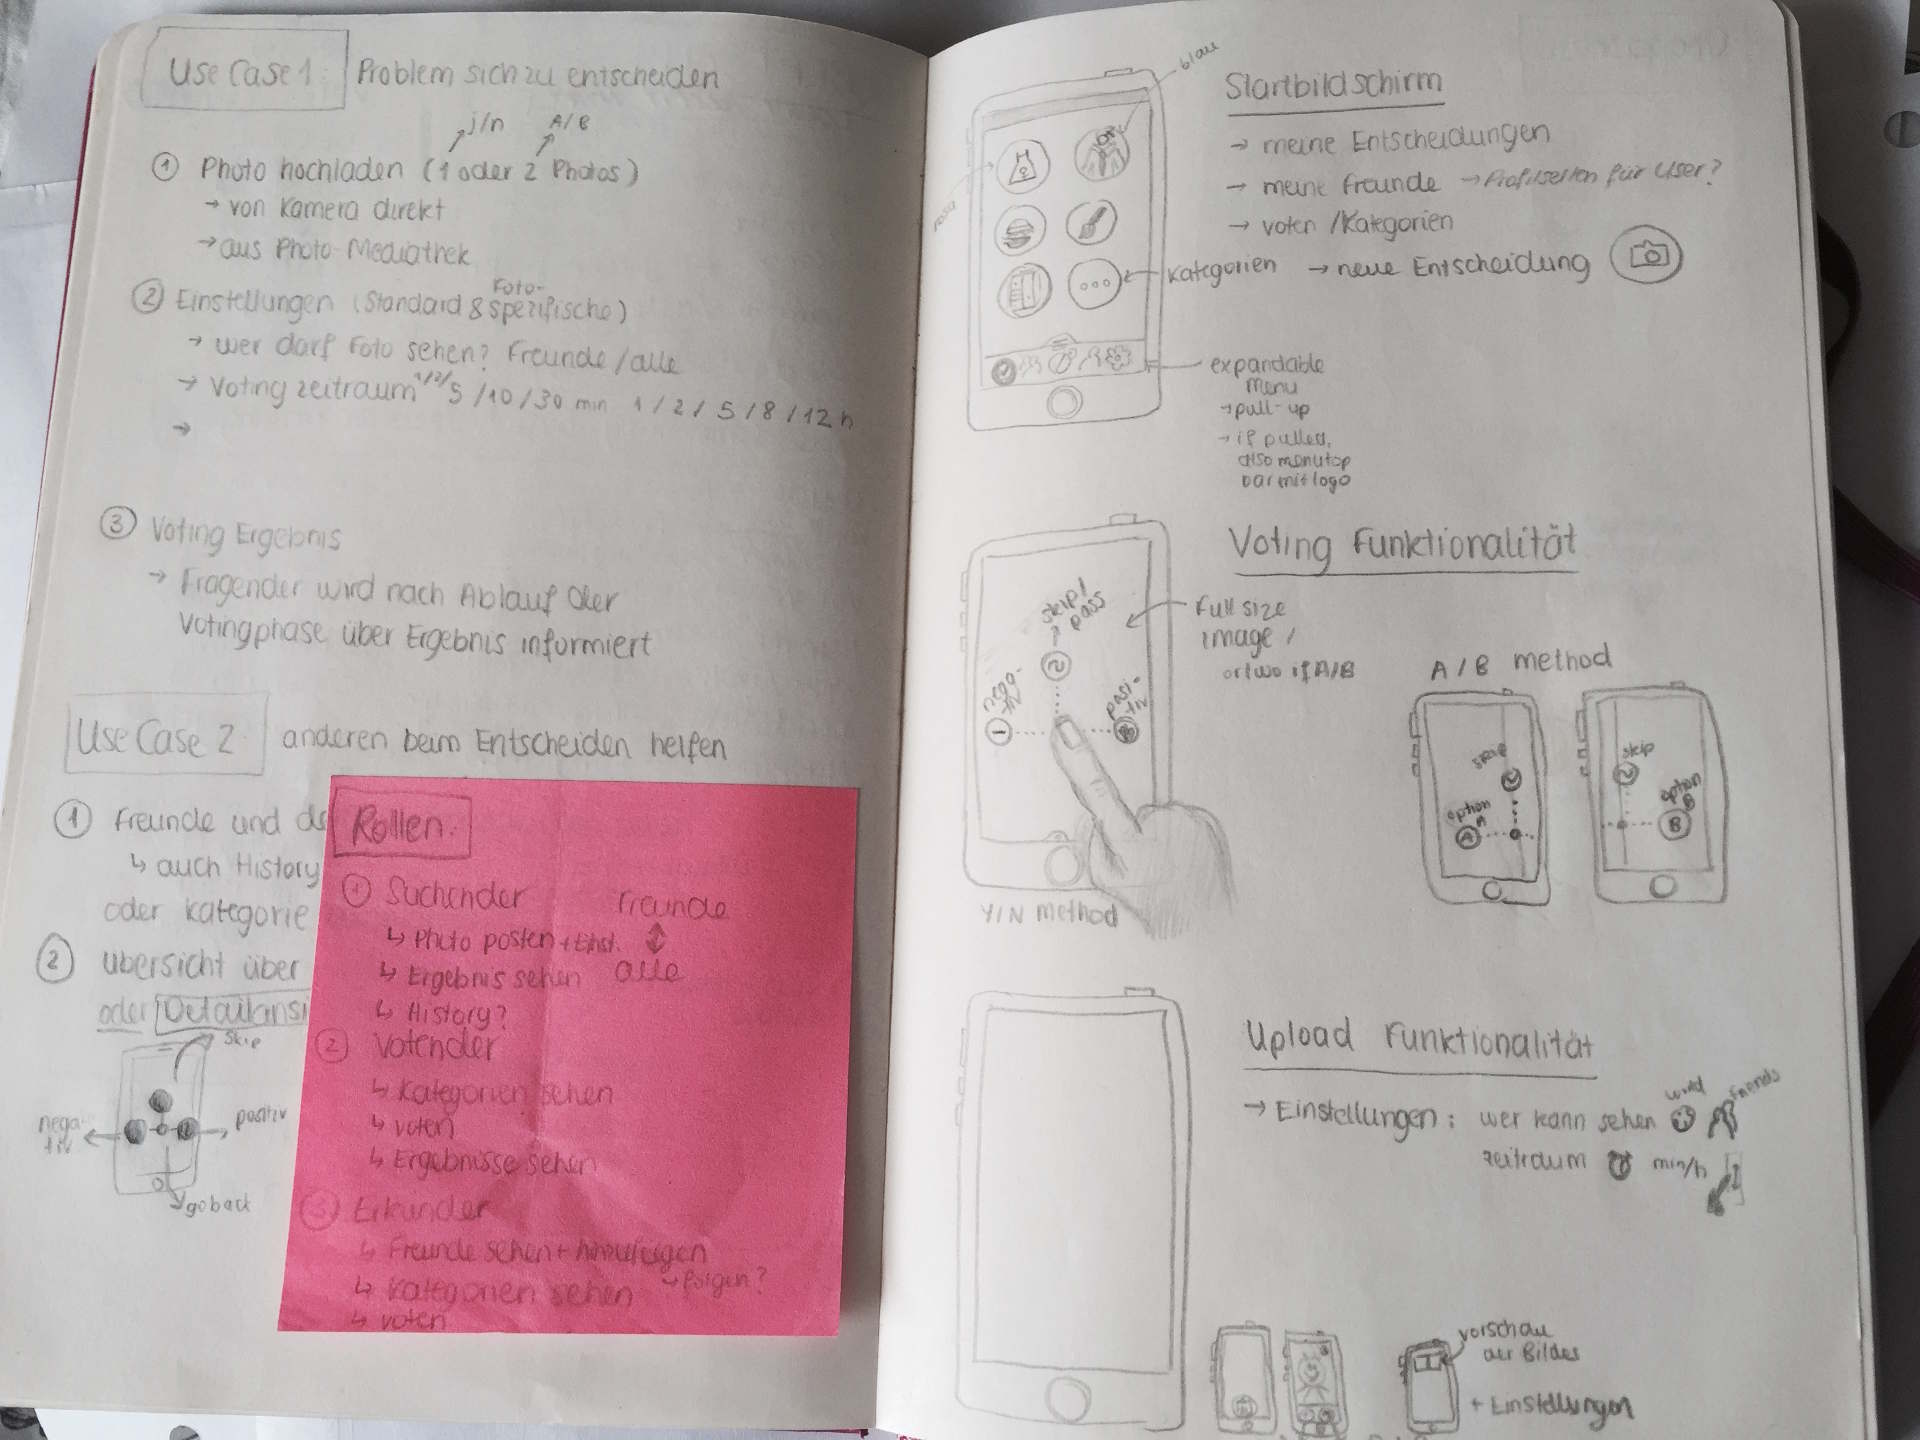 Use Case 1: Problem sich zu entscheiden
j/n A/B
① Photo hochladen (1 oder 2 Photos)
→ von Kamera direkt
→ aus Photo-Mediathek
② Einstellungen (Standard & Foto-spezifische)
→ wer darf Foto sehen? Freunde/alle
→ Voting zeitraum 1/2/5/10/30 min 1/2/5/8/12 h
→
③ Voting Ergebnis
→ Fragender wird nach Ablauf der
Votingphase über Ergebnis informiert
Use Case 2: anderen beim Entscheiden helfen
① Freunde und d
↳ auch History
oder Kategorie
② Übersicht über
oder Detailansi
skip
nega-
tiv
positiv
go back
Rollen:
① Suchender
↳ Photo posten + Einst.
↳ Ergebnis sehen
↳ History?
Freunde
↕
alle
② Votender
↳ Kategorien sehen
↳ voten
↳ Ergebnisse sehen
③ Erkunder
↳ Freunde sehen + hinzufügen
↳ Kategorien sehen ↳ folgen?
↳ voten
blau
rosa
Startbildschirm
→ meine Entscheidungen
→ meine Freunde → Profilseiten für User?
→ voten / Kategorien
Kategorien → neue Entscheidung
expandable
menu
→ pull-up
→ if pulled,
also menu top
bar mit logo
Voting Funktionalität
skip/
pass
nega-
tiv
posi-
tiv
Full size
image /
or two if A/B
Y/N method
A/B method
skip
option
A
A
skip
option
B
B
Upload Funktionalität
→ Einstellungen: wer kann sehen world Friends
zeitraum min/h
vorschau
der Bildes
+ Einstellungen